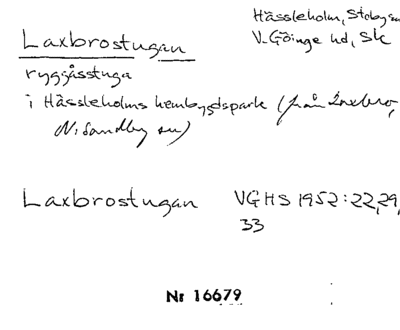 Hässleholm, Stoby sn
Laxbrostugan
V. Göinge hd, Sk
ryggåsstuga
i Hässleholms hembygdspark (från Laxbro,
N. Sandby sn)
Laxbrostugan VGHS 1952:22,29,
33
Nr 16679